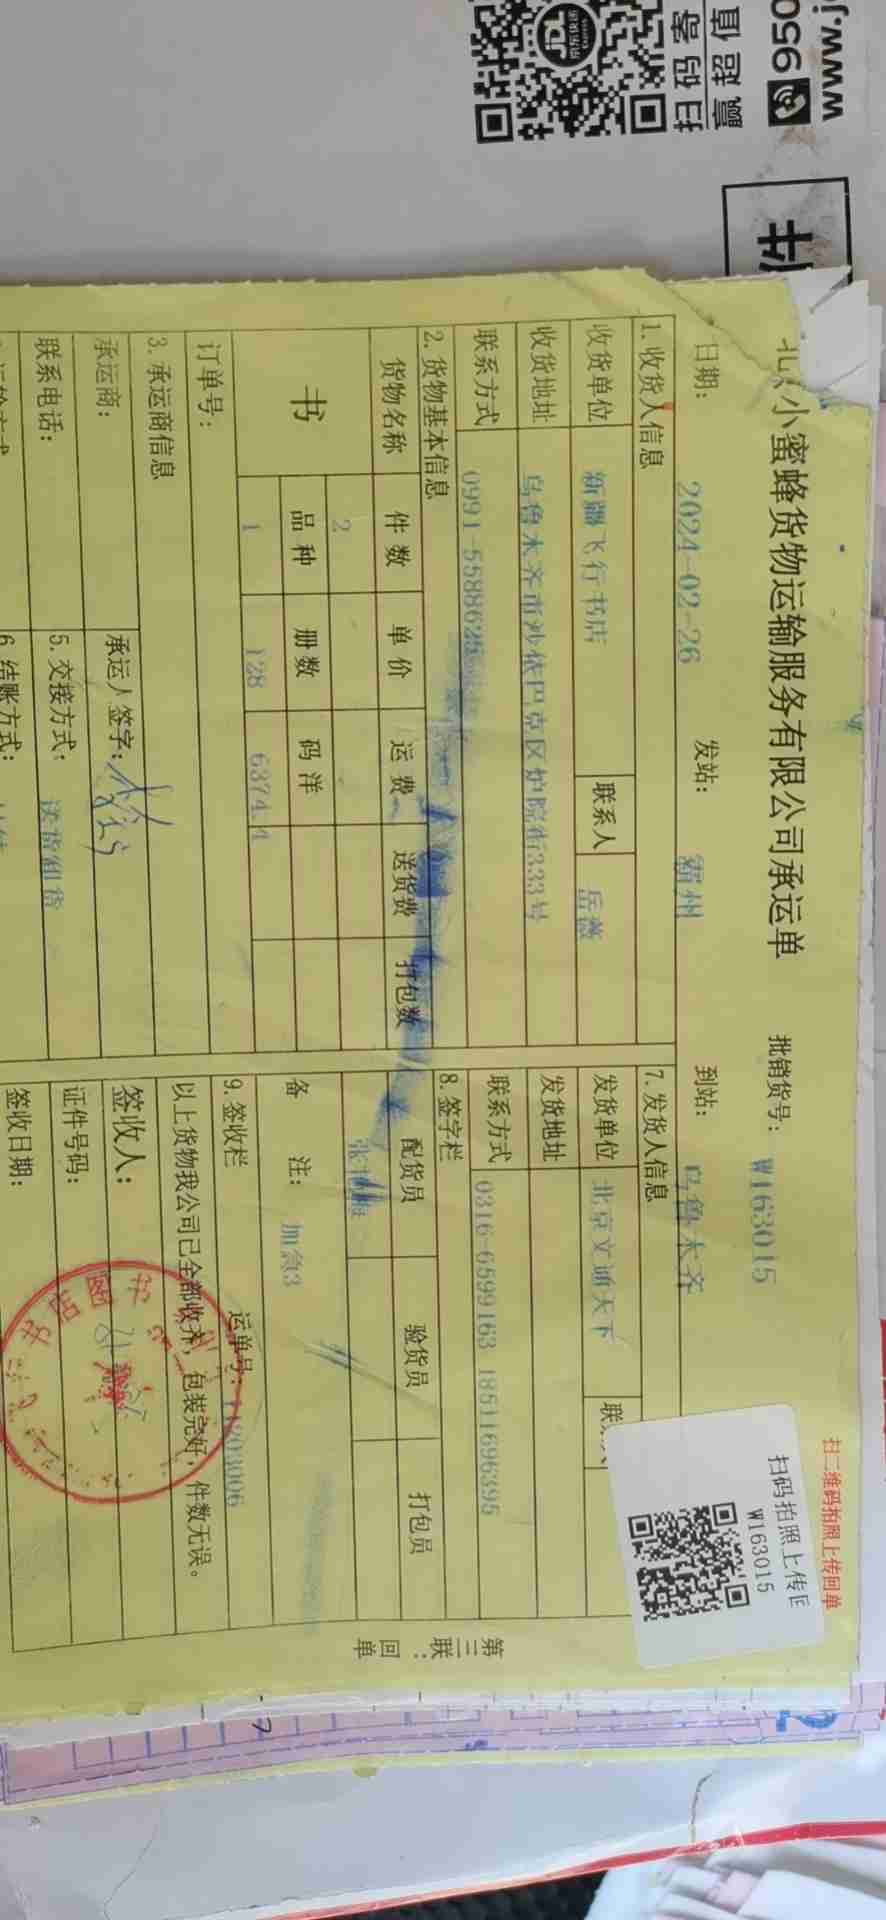 扫码寄
赢超值
www.j
950
JDL
件
小蜜蜂货物运输服务有限公司承运单
批销货号: W163015
扫二维码拍照上传回单
扫码拍照上传回
W163015
日期: 2024-02-26 发站: 霸州 到站: 乌鲁木齐
1. 收货人信息
收货单位 新疆飞行书店 联系人 岳薇
收货地址 乌鲁木齐市沙依巴克区炉院街333号
联系方式 0991-5588625
2. 货物基本信息
货物名称 件数 单价 运费 送货费 打包数
书 2
品种 册数 码洋
1 128 6374.4
订单号:
3. 承运商信息
承运商: 承运人签字:
联系电话: 5. 交接方式: 送货卸货
6. 结账方式:
7. 发货人信息
发货单位 北京文通天下 联
发货地址
联系方式 0316-6599163 18511696395
8. 签字栏
配货员 验货员 打包员
备 注: 加急3
9. 签收栏 运单号:
以上货物我公司已全部收齐,包装完好,件数无误。
签收人:
证件号码:
签收日期:
书店图书
第三联:回单